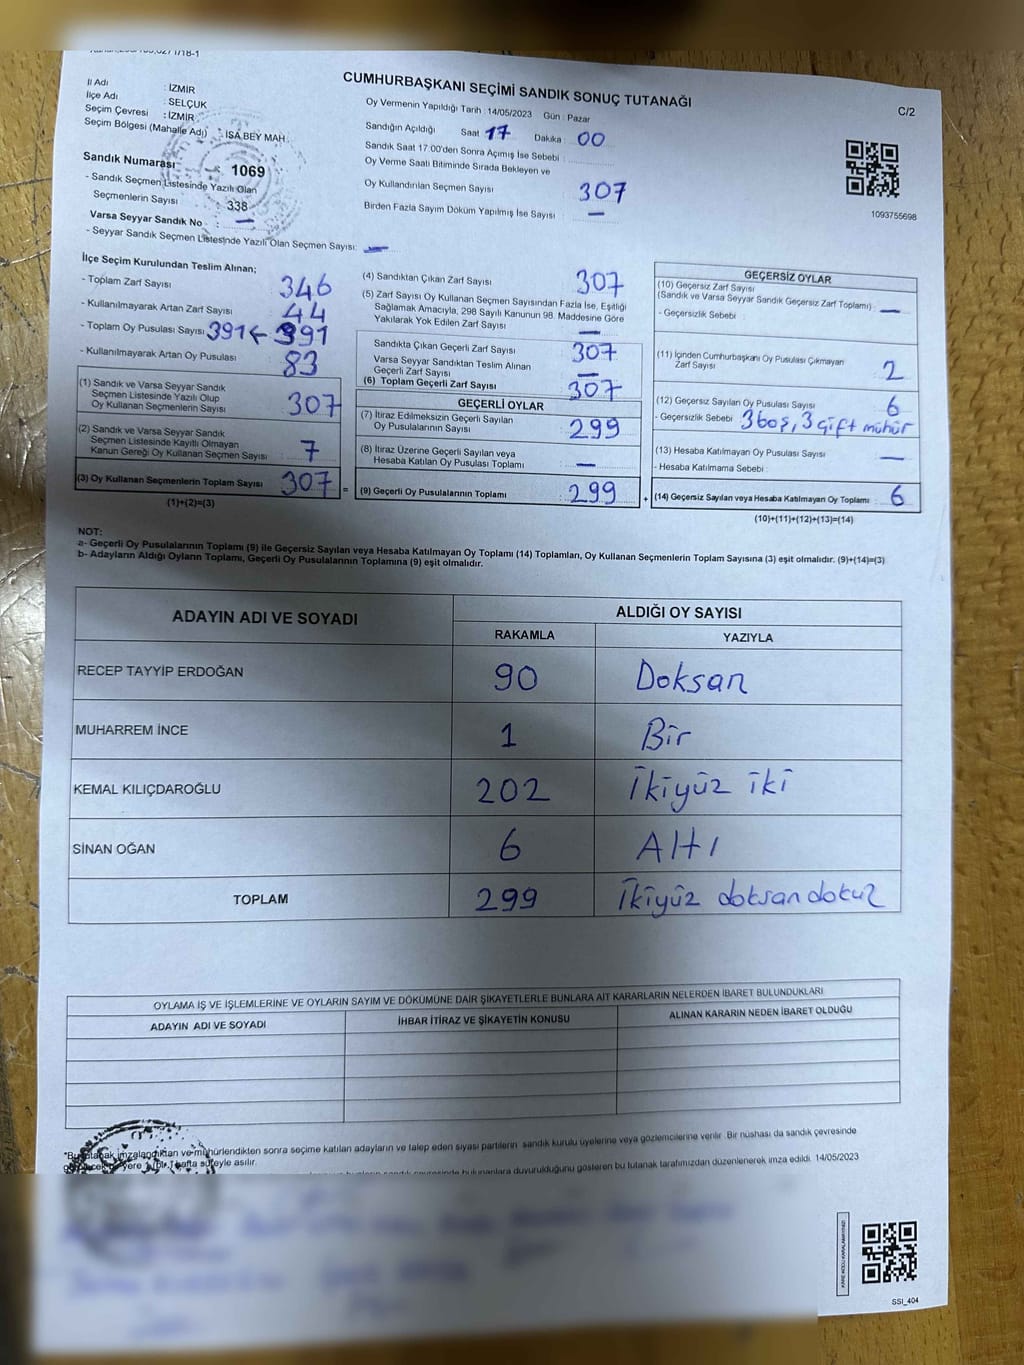 CUMHURBAŞKANI SEÇİMİ SANDIK SONUÇ TUTANAĞI
C/2
İl Adı : İZMİR
İlçe Adı : SELÇUK
Seçim Çevresi : İZMİR
Seçim Bölgesi (Mahalle Adı) : İSA BEY MAH.
Sandık Numarası : 1069
- Sandık Seçmen Listesinde Yazılı Olan
Seçmenlerin Sayısı : 338
Varsa Seyyar Sandık No : —
- Seyyar Sandık Seçmen Listesinde Yazılı Olan Seçmen Sayısı: —
Oy Vermenin Yapıldığı Tarih : 14/05/2023 Gün : Pazar
Sandığın Açıldığı Saat 17 Dakika 00
Sandık Saat 17:00'den Sonra Açımış İse Sebebi :
Oy Verme Saati Bitiminde Sırada Bekleyen ve
Oy Kullandırılan Seçmen Sayısı : 307
Birden Fazla Sayım Döküm Yapılmış İse Sayısı : —
1093755698
İlçe Seçim Kurulundan Teslim Alınan;
- Toplam Zarf Sayısı : 346
- Kullanılmayarak Artan Zarf Sayısı : 44
- Toplam Oy Pusulası Sayısı 391 ← 391
- Kullanılmayarak Artan Oy Pusulası : 83
(1) Sandık ve Varsa Seyyar Sandık
Seçmen Listesinde Yazılı Olup
Oy Kullanan Seçmenlerin Sayısı : 307
(2) Sandık ve Varsa Seyyar Sandık
Seçmen Listesinde Kayıtlı Olmayan
Kanun Gereği Oy Kullanan Seçmen Sayısı : 7
(3) Oy Kullanan Seçmenlerin Toplam Sayısı : 307
(1)+(2)=(3)
(4) Sandıktan Çıkan Zarf Sayısı : 307
(5) Zarf Sayısı Oy Kullanan Seçmen Sayısından Fazla İse, Eşitliği
Sağlamak Amacıyla, 298 Sayılı Kanunun 98. Maddesine Göre
Yakılarak Yok Edilen Zarf Sayısı : —
Sandıkta Çıkan Geçerli Zarf Sayısı : 307
Varsa Seyyar Sandıktan Teslim Alınan
Geçerli Zarf Sayısı : —
(6) Toplam Geçerli Zarf Sayısı : 307
GEÇERLİ OYLAR
(7) İtiraz Edilmeksizin Geçerli Sayılan
Oy Pusulalarının Sayısı : 299
(8) İtiraz Üzerine Geçerli Sayılan veya
Hesaba Katılan Oy Pusulası Toplamı : —
= (9) Geçerli Oy Pusulalarının Toplamı : 299 +
GEÇERSİZ OYLAR
(10) Geçersiz Zarf Sayısı
(Sandık ve Varsa Seyyar Sandık Geçersiz Zarf Toplamı) : —
- Geçersizlik Sebebi :
(11) İçinden Cumhurbaşkanı Oy Pusulası Çıkmayan
Zarf Sayısı : 2
(12) Geçersiz Sayılan Oy Pusulası Sayısı : 6
- Geçersizlik Sebebi 3 boş, 3 çift mühür
(13) Hesaba Katılmayan Oy Pusulası Sayısı : —
- Hesaba Katılmama Sebebi :
(14) Geçersiz Sayılan veya Hesaba Katılmayan Oy Toplamı : 6
(10)+(11)+(12)+(13)=(14)
NOT:
a- Geçerli Oy Pusulalarının Toplamı (9) ile Geçersiz Sayılan veya Hesaba Katılmayan Oy Toplamı (14) Toplamları, Oy Kullanan Seçmenlerin Toplam Sayısına (3) eşit olmalıdır. (9)+(14)=(3)
b- Adayların Aldığı Oyların Toplamı, Geçerli Oy Pusulalarının Toplamına (9) eşit olmalıdır.
ADAYIN ADI VE SOYADI ALDIĞI OY SAYISI
RAKAMLA YAZIYLA
RECEP TAYYİP ERDOĞAN 90 Doksan
MUHARREM İNCE 1 Bir
KEMAL KILIÇDAROĞLU 202 İkiyüz iki
SİNAN OĞAN 6 Altı
TOPLAM 299 İkiyüz doksan dokuz
OYLAMA İŞ VE İŞLEMLERİNE VE OYLARIN SAYIM VE DÖKÜMÜNE DAİR ŞİKAYETLERLE BUNLARA AİT KARARLARIN NELERDEN İBARET BULUNDUKLARI
ADAYIN ADI VE SOYADI İHBAR İTİRAZ VE ŞİKAYETİN KONUSU ALINAN KARARIN NEDEN İBARET OLDUĞU
imzalandıktan ve mühürlendikten sonra seçime katılan adayların ve talep eden siyasi partilerin sandık kurulu üyelerine veya gözlemcilerine verilir. Bir nüshası da sandık çevresinde
hafta süreyle asılır.
bulunanlara duyurulduğunu gösteren bu tutanak tarafımızdan düzenlenerek imza edildi. 14/05/2023
SSİ_404